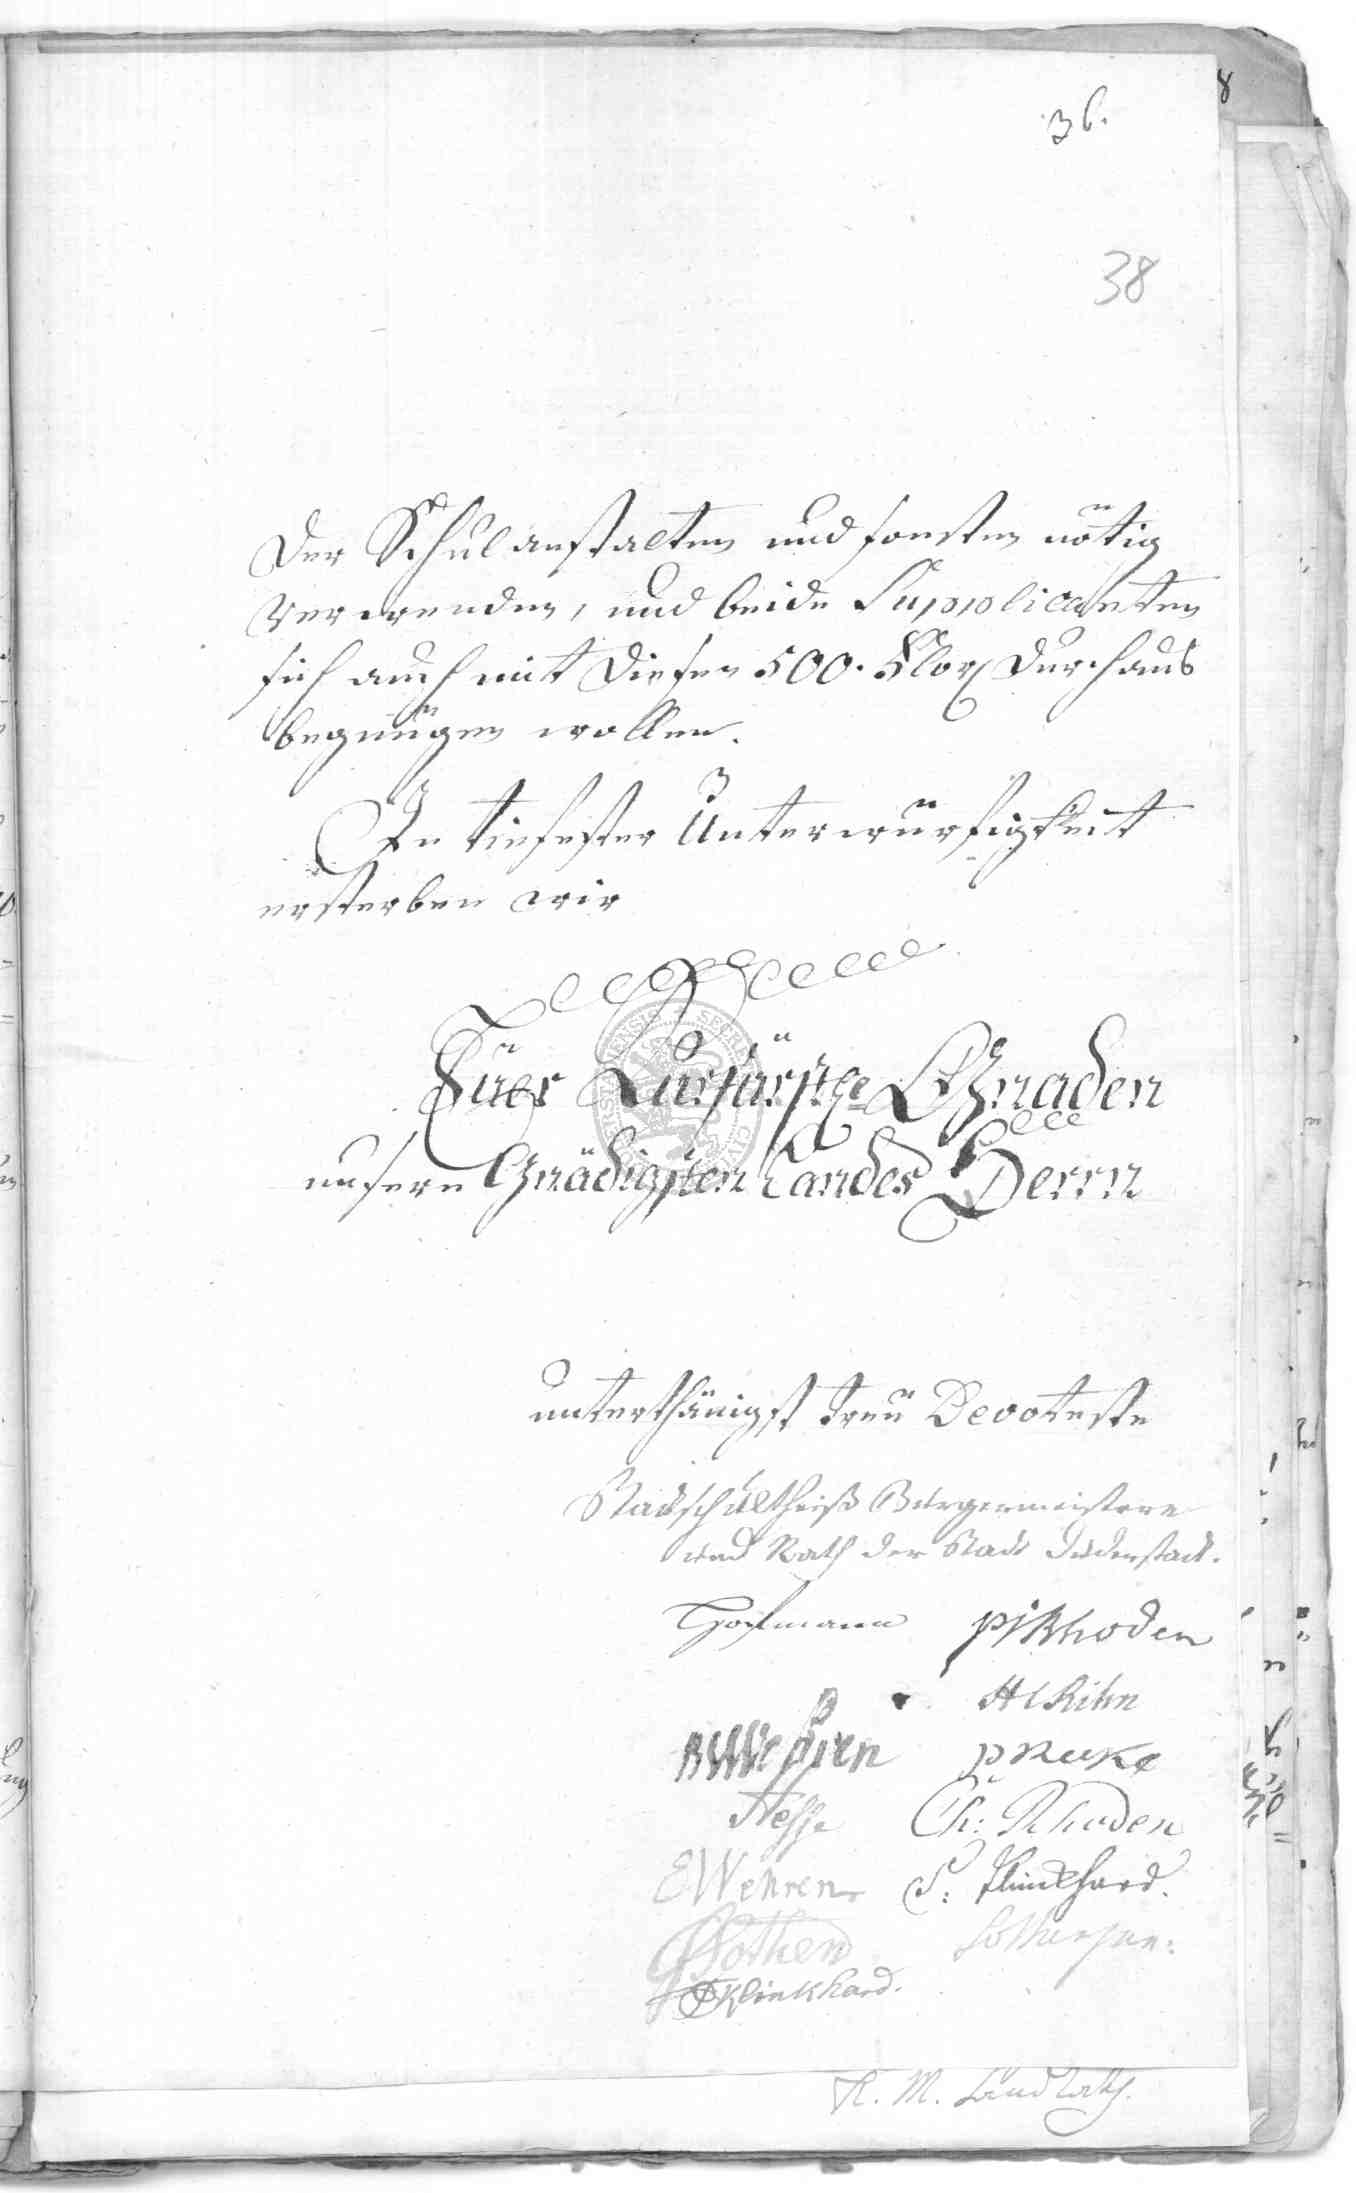 36.
38
der Schulanstalten und sonsten nötig
verwenden, und beide Supplicanten
sich auch mit diesen 500. Flor durchaus
begnügen wollen.
In tiefester Unterwürfigkeit
ersterben wir
Euer Kurfürstle Gnaden
unsern Gnädigsten Landes Herrn
unterthänigst treu Devoteste
Stadtschultheiß Bürgermeistere
und Rath der Stadt Duderstadt.
Hofmann PJRhoden
HCRihn
PNecke
Hesse Ch: Rhoden
EWehren S: Klinckhard.
Klinkhard.